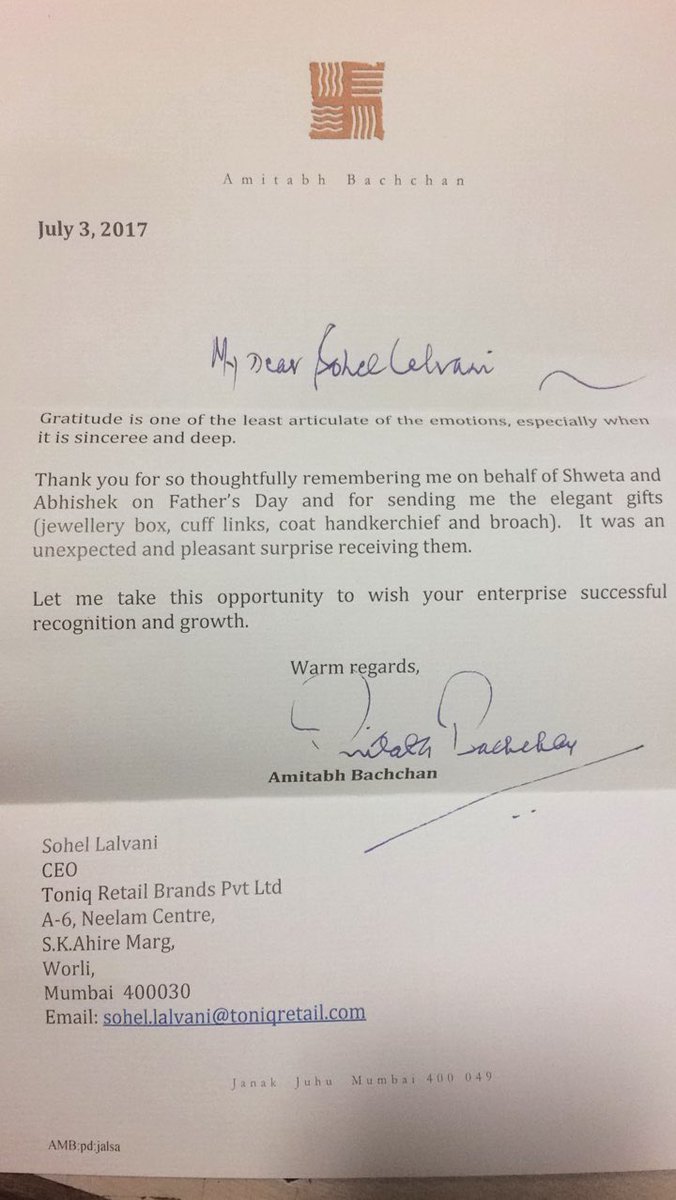 Amitabh Bachchan
July 3, 2017
My Dear Sohel Lalvani
Gratitude is one of the least articulate of the emotions, especially when
it is sinceree and deep.
Thank you for so thoughtfully remembering me on behalf of Shweta and
Abhishek on Father's Day and for sending me the elegant gifts
(jewellery box, cuff links, coat handkerchief and broach). It was an
unexpected and pleasant surprise receiving them.
Let me take this opportunity to wish your enterprise successful
recognition and growth.
Warm regards,
Amitabh Bachchan
Amitabh Bachchan
Sohel Lalvani
CEO
Toniq Retail Brands Pvt Ltd
A-6, Neelam Centre,
S.K.Ahire Marg,
Worli,
Mumbai 400030
Email: sohel.lalvani@toniqretail.com
Janak Juhu Mumbai 400 049
AMB:pd:jalsa